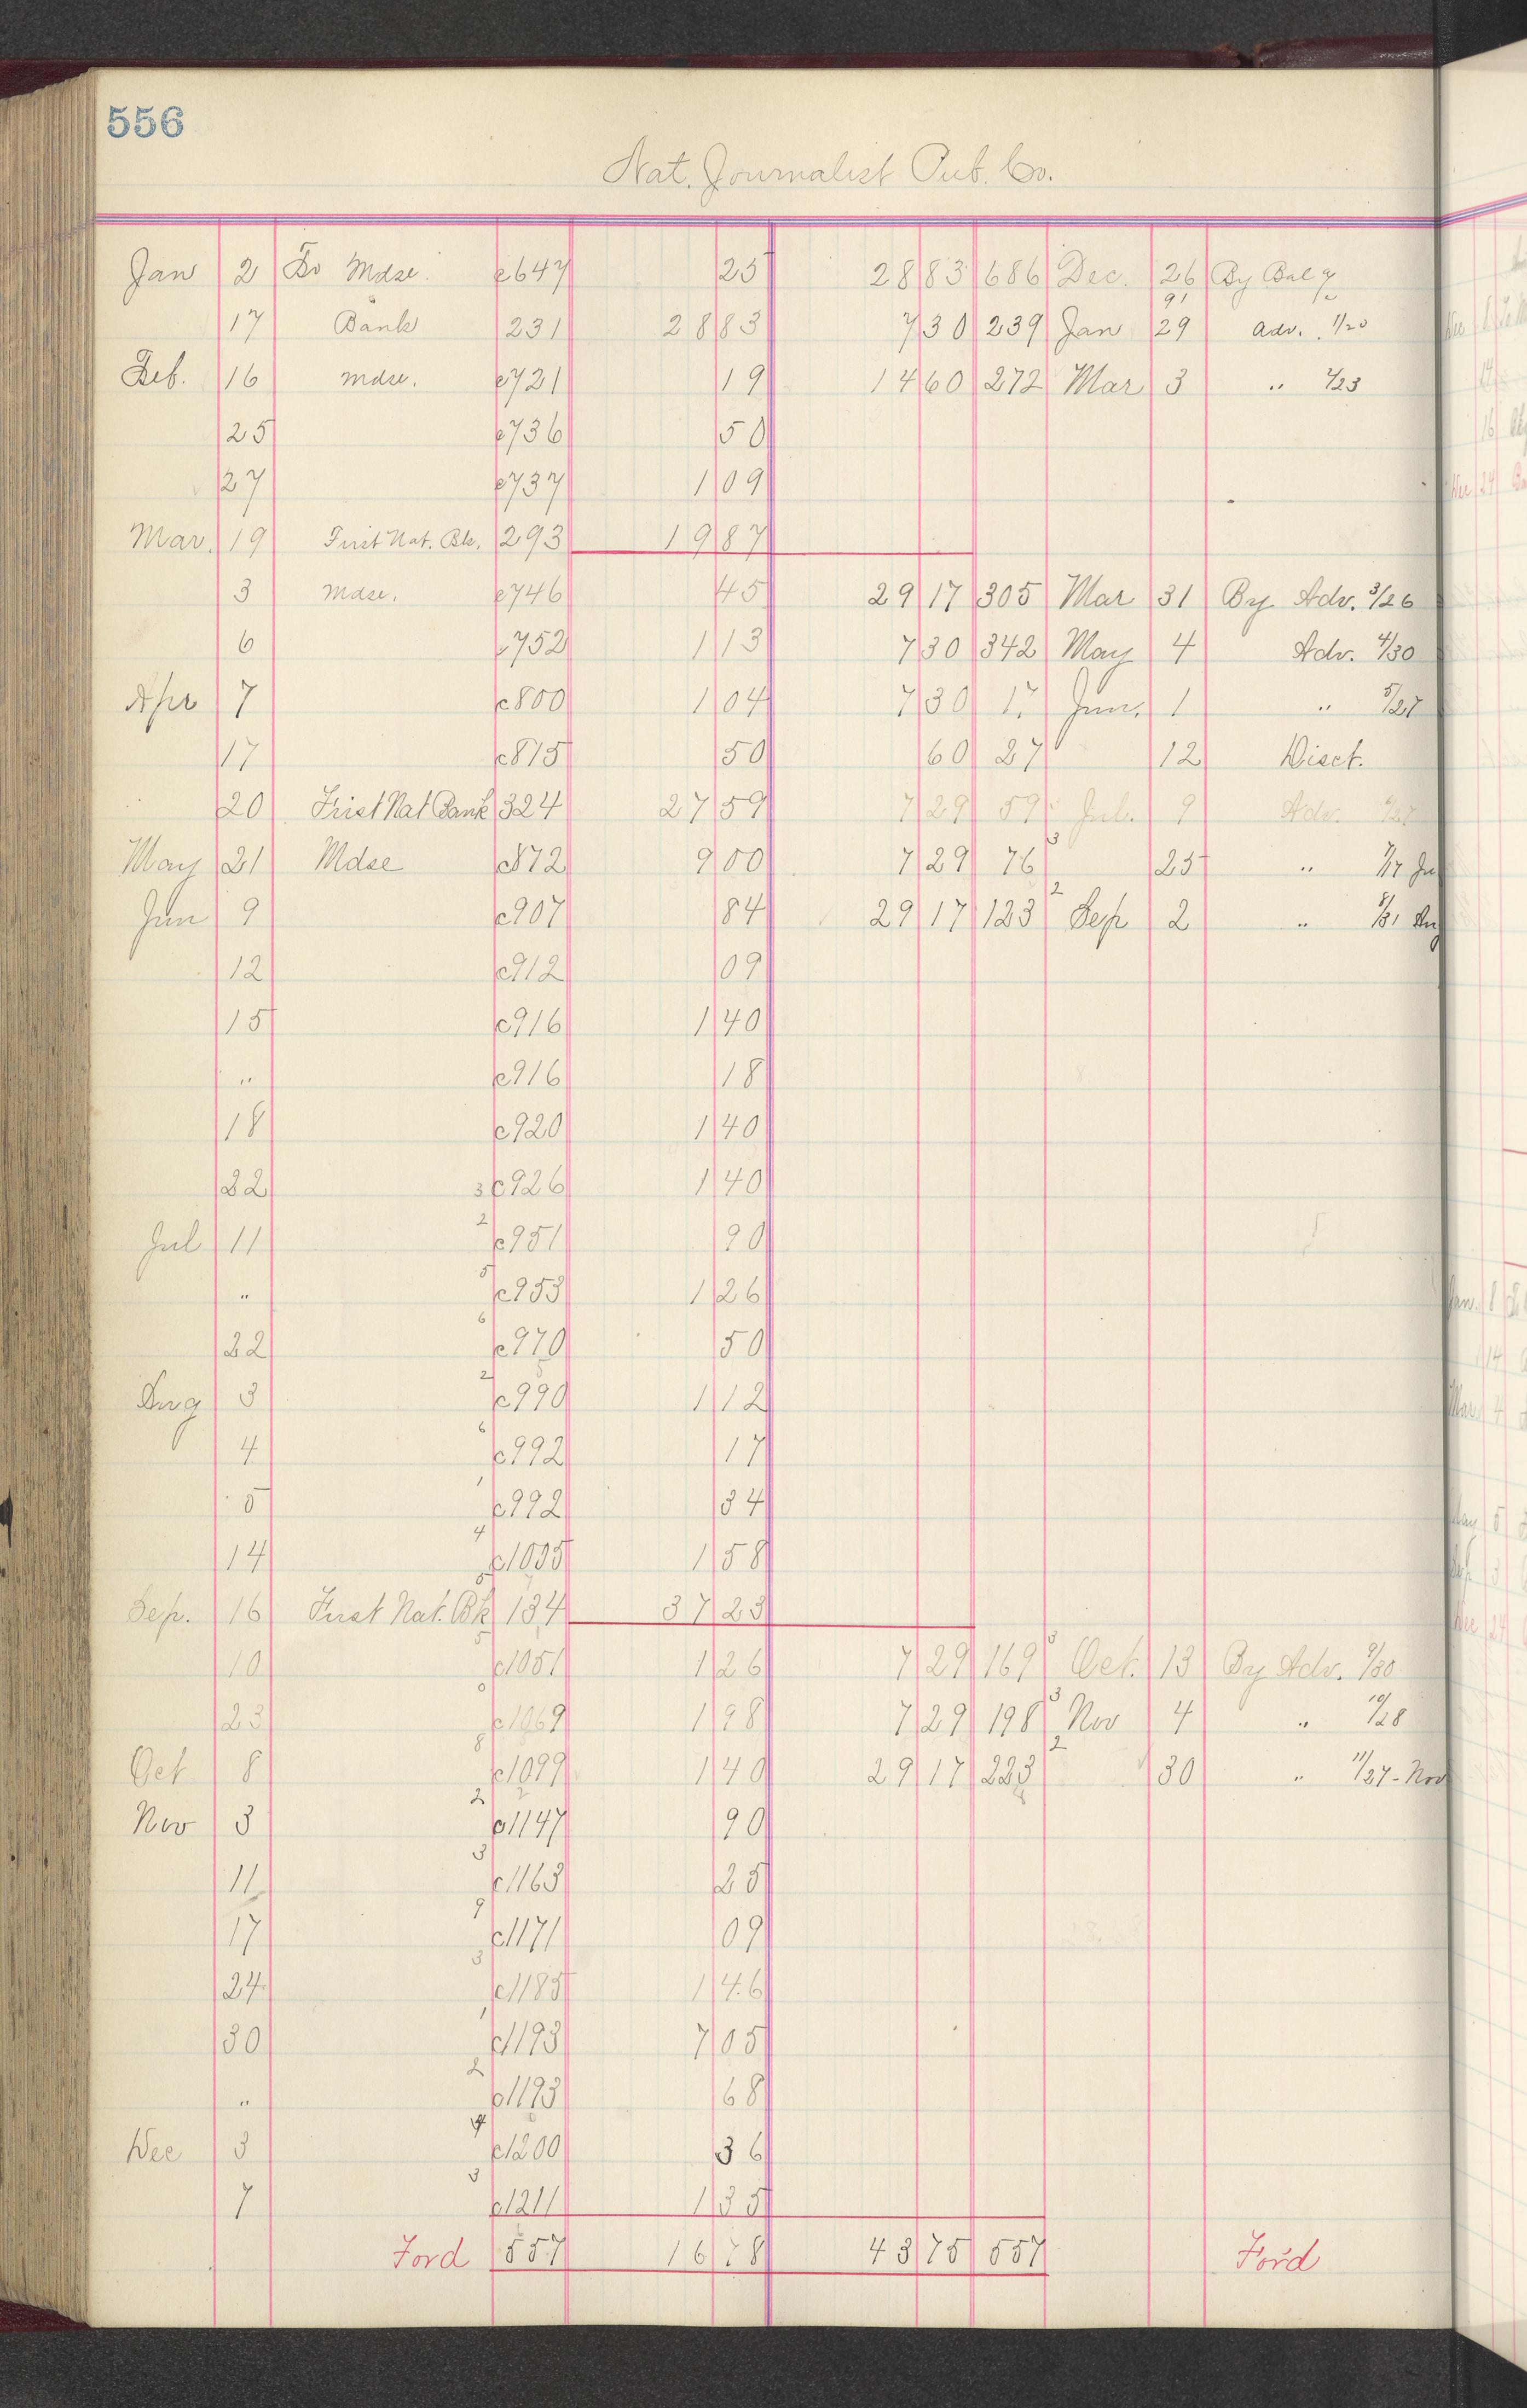 556
Nat. Journalist Pub. Co.
Jan 2 To Mdse. c647 25 28 83 686 Dec. 26 By Bal
17 Bank 231 28 83 7 30 239 Jan 29 Adv. 1/20
Feb. 16 Mdse. c721 19 14 60 272 Mar 3 " 2/23
25 c736 50
27 c737 1 09
Mar. 19 First Nat. Bk. 293 19 87
3 Mdse. c746 45 29 17 305 Mar 31 By Adv. 3/26
6 c752 1 13 7 30 342 May 4 Adv. 4/30
Apr 7 c800 1 04 7 30 17 Jun. 1 " 5/27
17 c815 50 60 27 12 Disct.
20 First Nat Bank 324 27 59 7 29 59 Jul. 9 Adv.
May 21 Mdse c872 9 00 7 29 76 3 25 " 7/17
Jun 9 c907 84 29 17 123 2 Sep 2 " 8/31
12 c912 09
15 c916 1 40
" c916 18
18 c920 1 40
22 3 c926 1 40
Jul 11 2 c951 90
" 5 c953 1 26
22 6 c970 50
Aug 3 2 c990 1 12
4 6 c992 17
5 1 c992 34
14 4 c1035 1 58
Sep. 16 First Nat. Bk 134 37 23
10 5 c1051 1 26 7 29 169 3 Oct. 13 By Adv. 9/30
23 c1069 1 98 7 29 198 3 Nov 4 " 10/28
Oct 8 8 c1099 1 40 29 17 223 2 30 " 11/27 - Nov
Nov 3 2 c1147 90
11 3 c1163 25
17 9 c1171 09
24 3 c1185 1 46
30 1 c1193 7 05
" 2 c1193 68
Dec 3 4 c1200 36
7 3 c1211 1 35
Ford 557 16 78 43 75 557 Ford